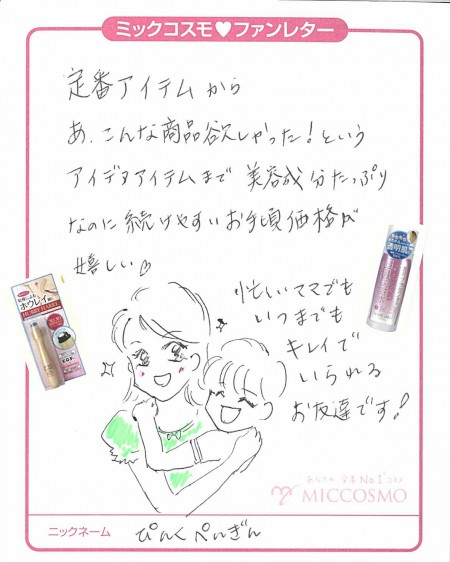 ミックコスモ♥ファンレター
定番アイテムから
あ、こんな商品欲しかった！という
アイデアアイテムまで 美容成分たっぷり
なのに続けやすいお手頃価格が
嬉しい♡
忙しいママでも
いつまでも
キレイで
いられる
お友達です！
ホウレイ
透明肌
MICCOSMO
ニックネーム
ぴんくぺんぎん